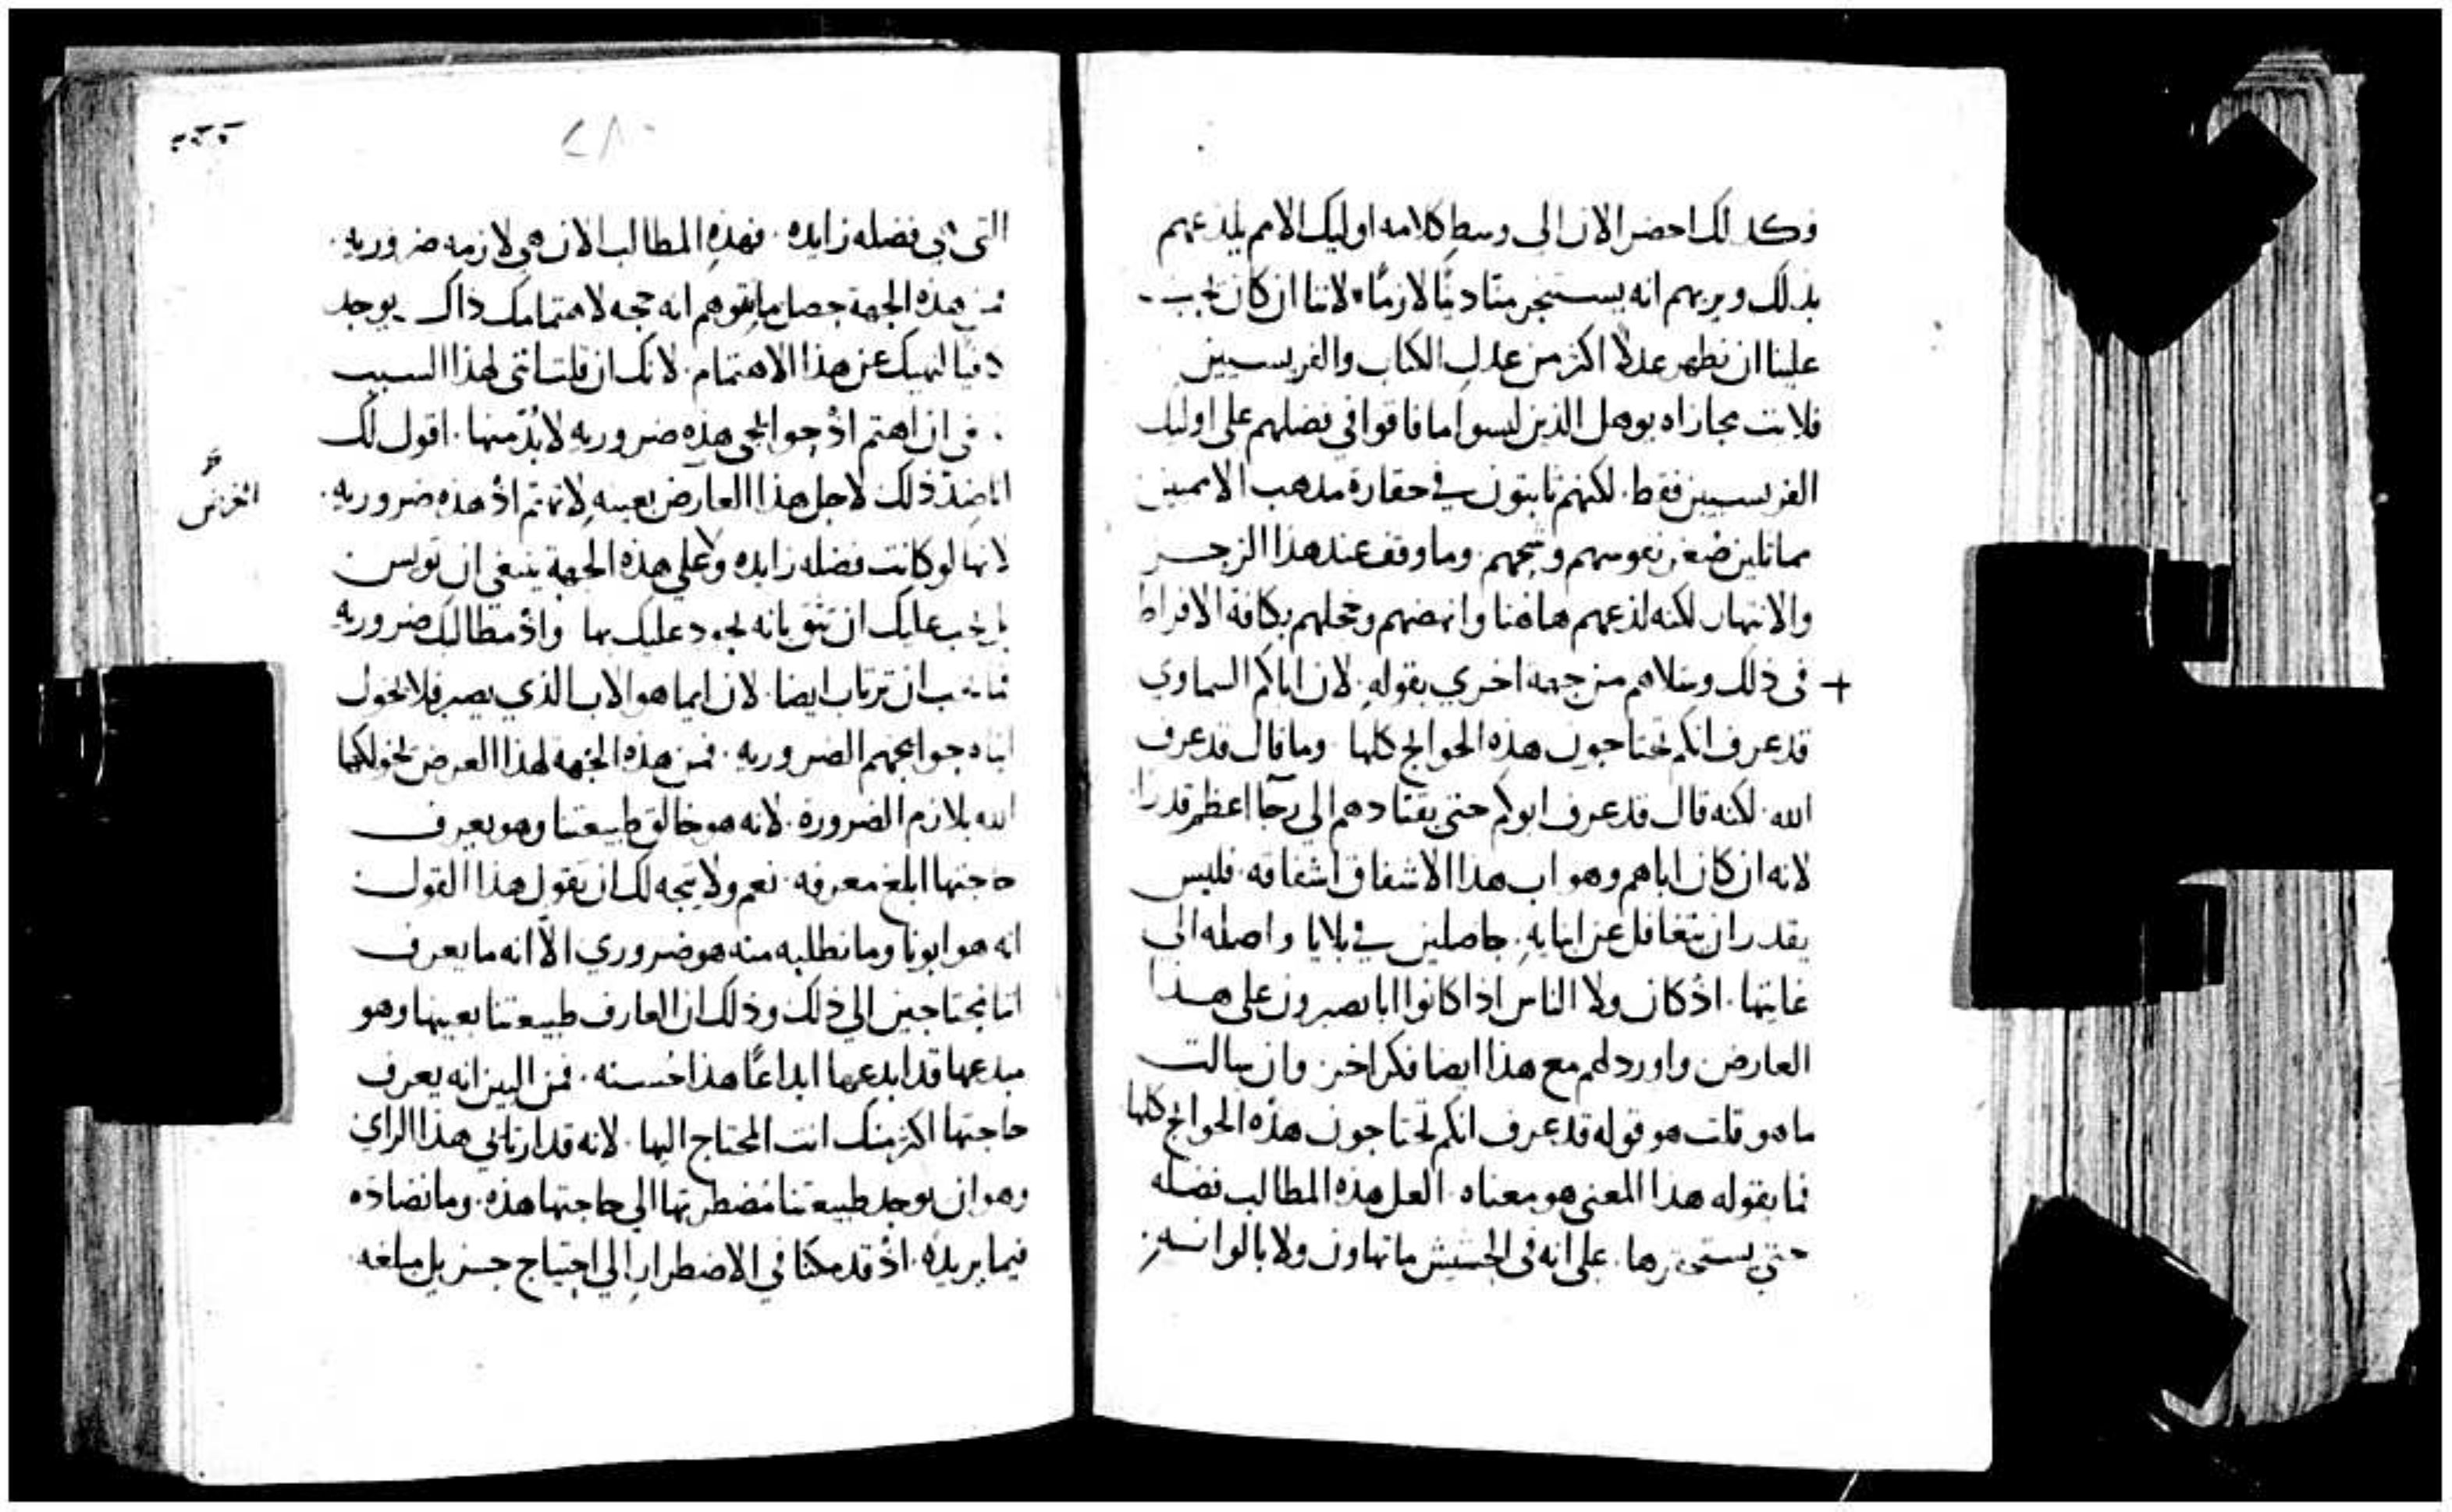 فكذلك احضر الان الى وسط كلامه اوليك الامم يلذعهم
بذلك ويريهم انه يستنجز منّا دينًا لازمًا لاننا ان كان يجب
علينا ان نظهر عدلًا اكثر من عدل الكتاب والفريسيين
فلايت مجازاه يوهل الذين ليسوا ما فاقوا في فضلهم على اوليك
الفريسيين فقط. لكنهم ثابتون في حقارة مذهب الامميين
مماثلين صغر نفوسهم وشحهم. وما وقف عند هذا الزجر
والانتهار لكنه لذعهم هاهنا وانهضهم وخجلهم بكافة الافراط
+ في ذلك وسلاهم من جهه اخري بقوله. لان اباكم السماوي
قد عرف انكم تحتاجون هذه الحوايج كلها وما قال قد عرف
الله. لكنه قال قد عرف ابوكم حتى يقتادهم الى رجآ اعظم قدرًا
لانه ان كان اباهم وهو اب هذا الاشفاق اشفاقه. فليس
يقدر ان يتغافل عن ابنايه. حاصلين في بلايا واصله الى
غايتها. اذ كان ولا الناس اذا كانوا ابا يصبرون على هذا
العارض واورد لهم مع هذا ايضا فكرا اخر وان سالت
ما هو قلت هو قوله قد عرف انكم تحتاجون هذه الحوايج كلها
فما يقوله هذا المعنى هو معناه العل هذه المطالب فضله
حتى على انه في الحشيش ما تهاون ولا
التى هي فضله زايده. فهذه المطالب الان هي لازمه ضروريه.
فمن هذه الجهة حصل ما تتوهم انه حجه لاهتمامك ذاك يوجد
دفيا لنهيك عن هذا الاهتمام. لانك ان قلت انني لهذا السبب
في ان اهتم اذ حوايجى هذه ضروريه لا بُدّ منها. اقول لك
انا ضدّ ذلك لاجل هذا العارض بعينه لا تهتم اذ هذه ضروريه.
لانها لو كانت فضله زايده ولا على هذه الجهة ينبغى ان تويس
بل يجب عليك ان تثق بانه يجود عليك بها واذ مطالبك ضروريه
فما يجب ان ترتاب ايضا. لان ايما هو الاب الذي يصبر فلا يخول
ابناه حوايجهم الضروريه. فمن هذه الجهة لهذا العرض يخولكها
الله بلازم الضروره. لانه هو خالق طبيعتنا وهو يعرف
حاجتها ابلغ معرفه. نعم ولا يتجه لك ان تقول هذا القول
انه هو ابونا وما نطلبه منه هو ضروري الّا انه ما يعرف
اننا محتاجين الي ذلك وذلك ان العارف طبيعتنا بعينها وهو
مبدعها قد ابدعها ابداعًا هذا حُسنه. فمن البين انه يعرف
حاجتها اكثر منك انت المحتاج اليها. لانه قد ارتاي هذا الراي
وهو ان يوجد طبيعتنا مُضطر بها الي حاجتها هذه. وما نضاده
فيما يريده. اذ قد مكنا في الاضطرار الي احتياج جزيل مبلغه